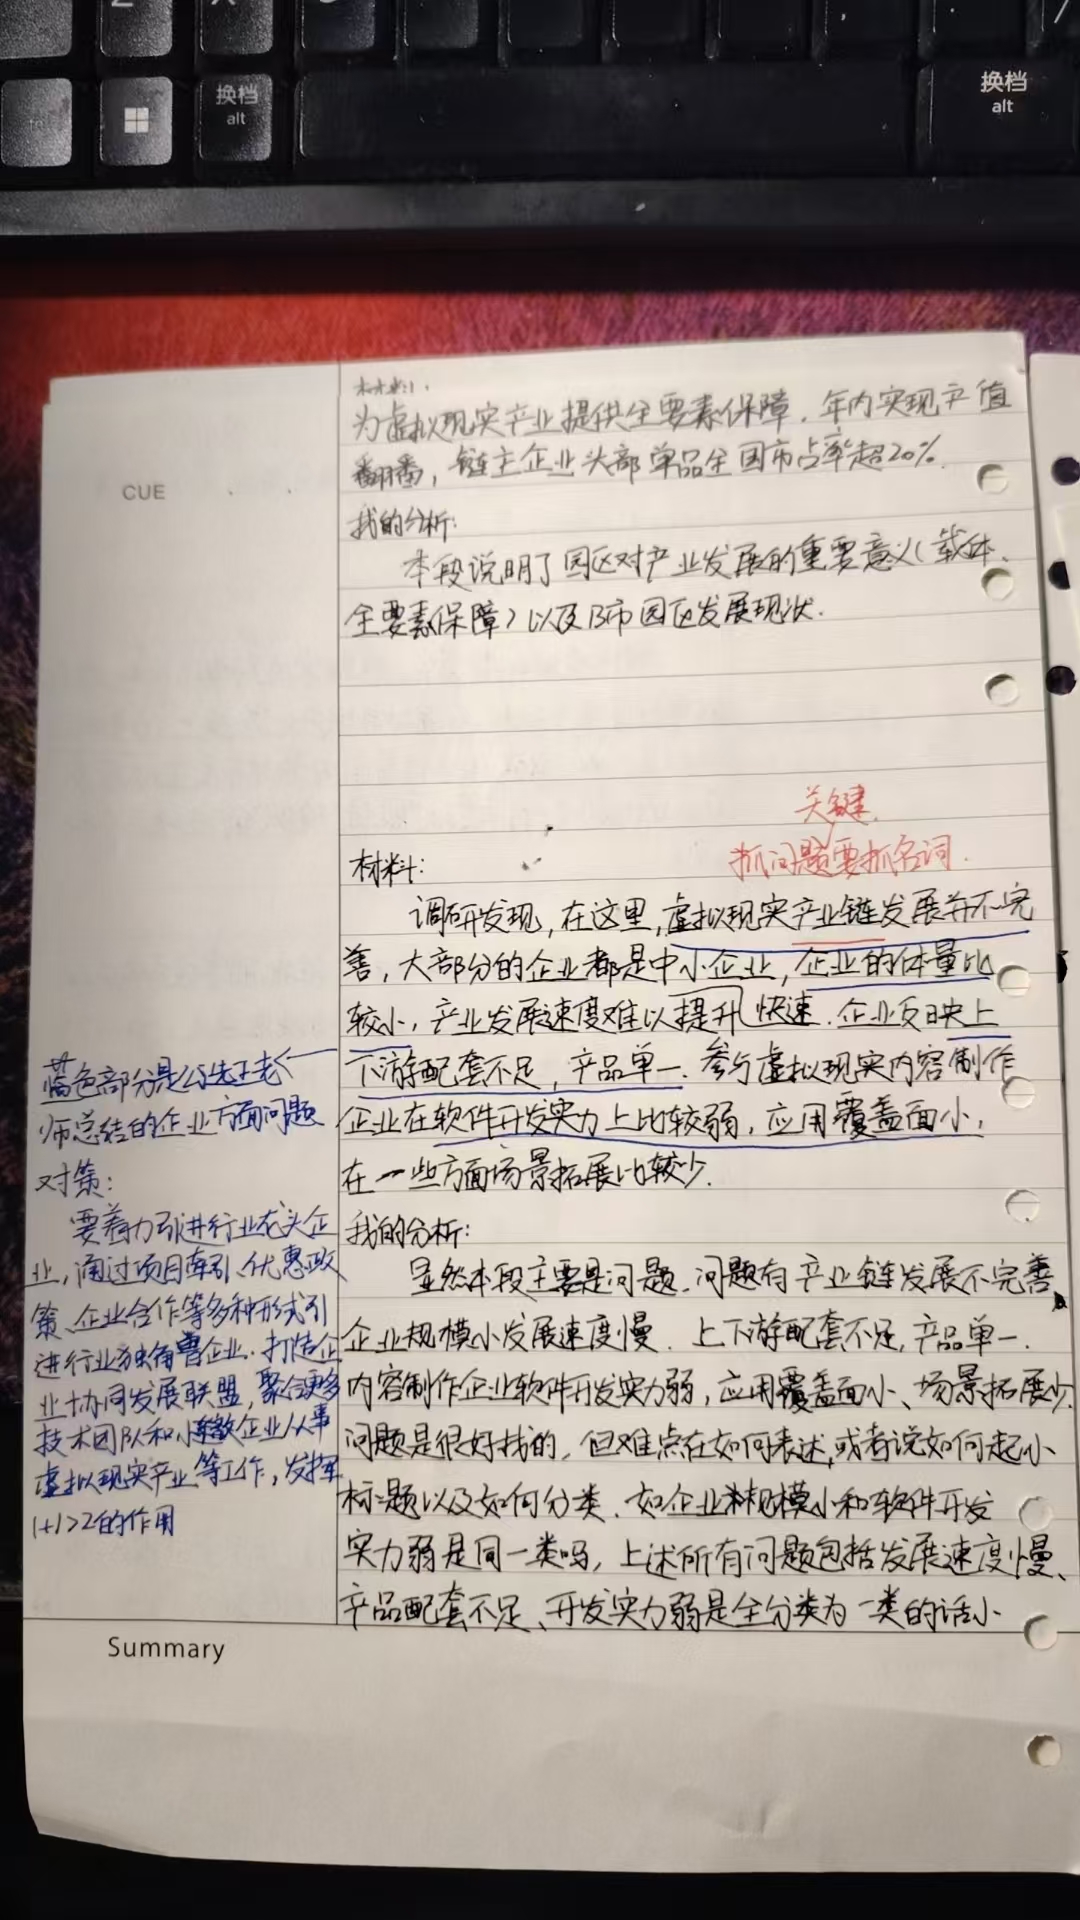 换档
alt
换档
alt
CUE
材料:
为虚拟现实产业提供全要素保障.年内实现产值
翻番,链主企业头部单品全国市占率超20%.
我的分析:
本段说明了园区对产业发展的重要意义(载体、
全要素保障)以及B市园区发展现状.
关键.
抓问题要抓名词.
材料:
调研发现,在这里,虚拟现实产业链发展并不完
善,大部分的企业都是中小企业,企业的体量比
较小,产业发展速度难以提升快速.企业反映上
下游配套不足,产品单一.参与虚拟现实内容制作
企业在软件开发实力上比较弱,应用覆盖面小,
在一些方面场景拓展比较少.
我的分析:
显然本段主要是问题.问题有产业链发展不完善、
企业规模小发展速度慢.上下游配套不足,产品单一.
内容制作企业软件开发实力弱,应用覆盖面小、场景拓展少.
问题是很好找的,但难点在如何表述,或者说如何起小
标题以及如何分类.如企业规模小和软件开发
实力弱是同一类吗,上述所有问题包括发展速度慢、
产品配套不足、开发实力弱是全分类为一类的话小
蓝色部分是公选王老
师总结的企业方面问题
对策:
要着力引进行业龙头企
业,通过项目牵引、优惠政
策、企业合作等多种形式引
进行业独角兽企业.打造企
业协同发展联盟,聚合更多
技术团队和小微企业从事
虚拟现实产业等工作,发挥
1+1>2的作用
Summary